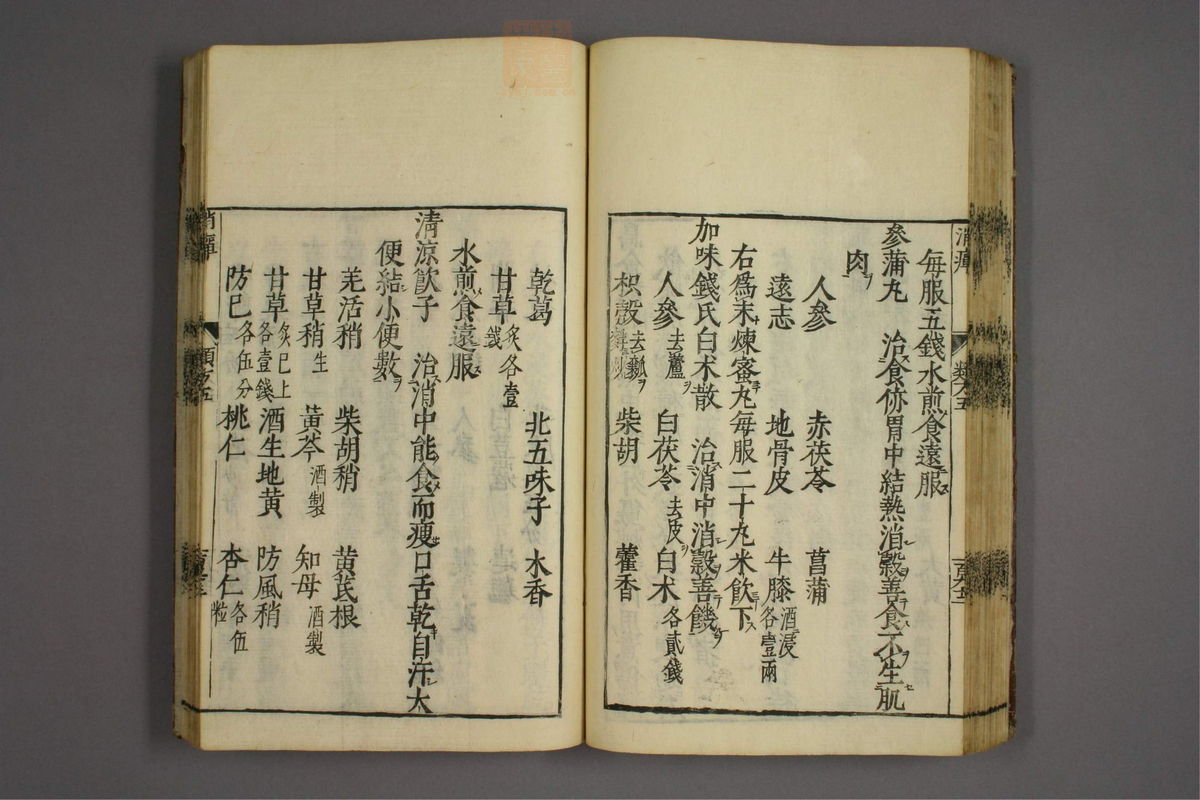 每服五錢水煎食遠服
參蒲丸 治食㑊胃中結熱消穀善食不生肌
肉
人參 赤茯苓 菖蒲
遠志 地骨皮 牛膝酒浸各壹兩
右爲末煉蜜丸每服二十丸米飲下
加味錢氏白朮散 治消中消穀善饑
人參去蘆 白茯苓去皮 白朮各貳錢
枳殼去瓤 柴胡 藿香
乾葛 北五味子 木香
甘草炙各壹錢
水煎食遠服
清涼飲子 治消中能食而瘦口舌乾自汗大
便結小便數
羌活稍 柴胡稍 黃芪根
甘草稍生 黃芩酒製 知母酒製
甘草炙已上各壹錢 酒生地黃 防風稍
防已各伍分 桃仁 杏仁各伍粒